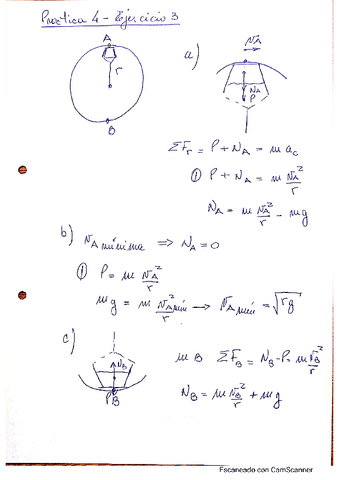 Practica 4 - Ejercicio 3
A
r
B
a)
v_A
N_A
P
ΣF_r = P + N_A = m a_c
① P + N_A = m v_A²/r
N_A = m v_A²/r - mg
b) v_A mínima ⇒ N_A = 0
① P = m v_A²/r
mg = m v_A mín²/r → v_A mín = √rg
c)
N_B
P
B
m B ΣF_B = N_B - P = m v_B²/r
N_B = m v_B²/r + mg
Escaneado con CamScanner